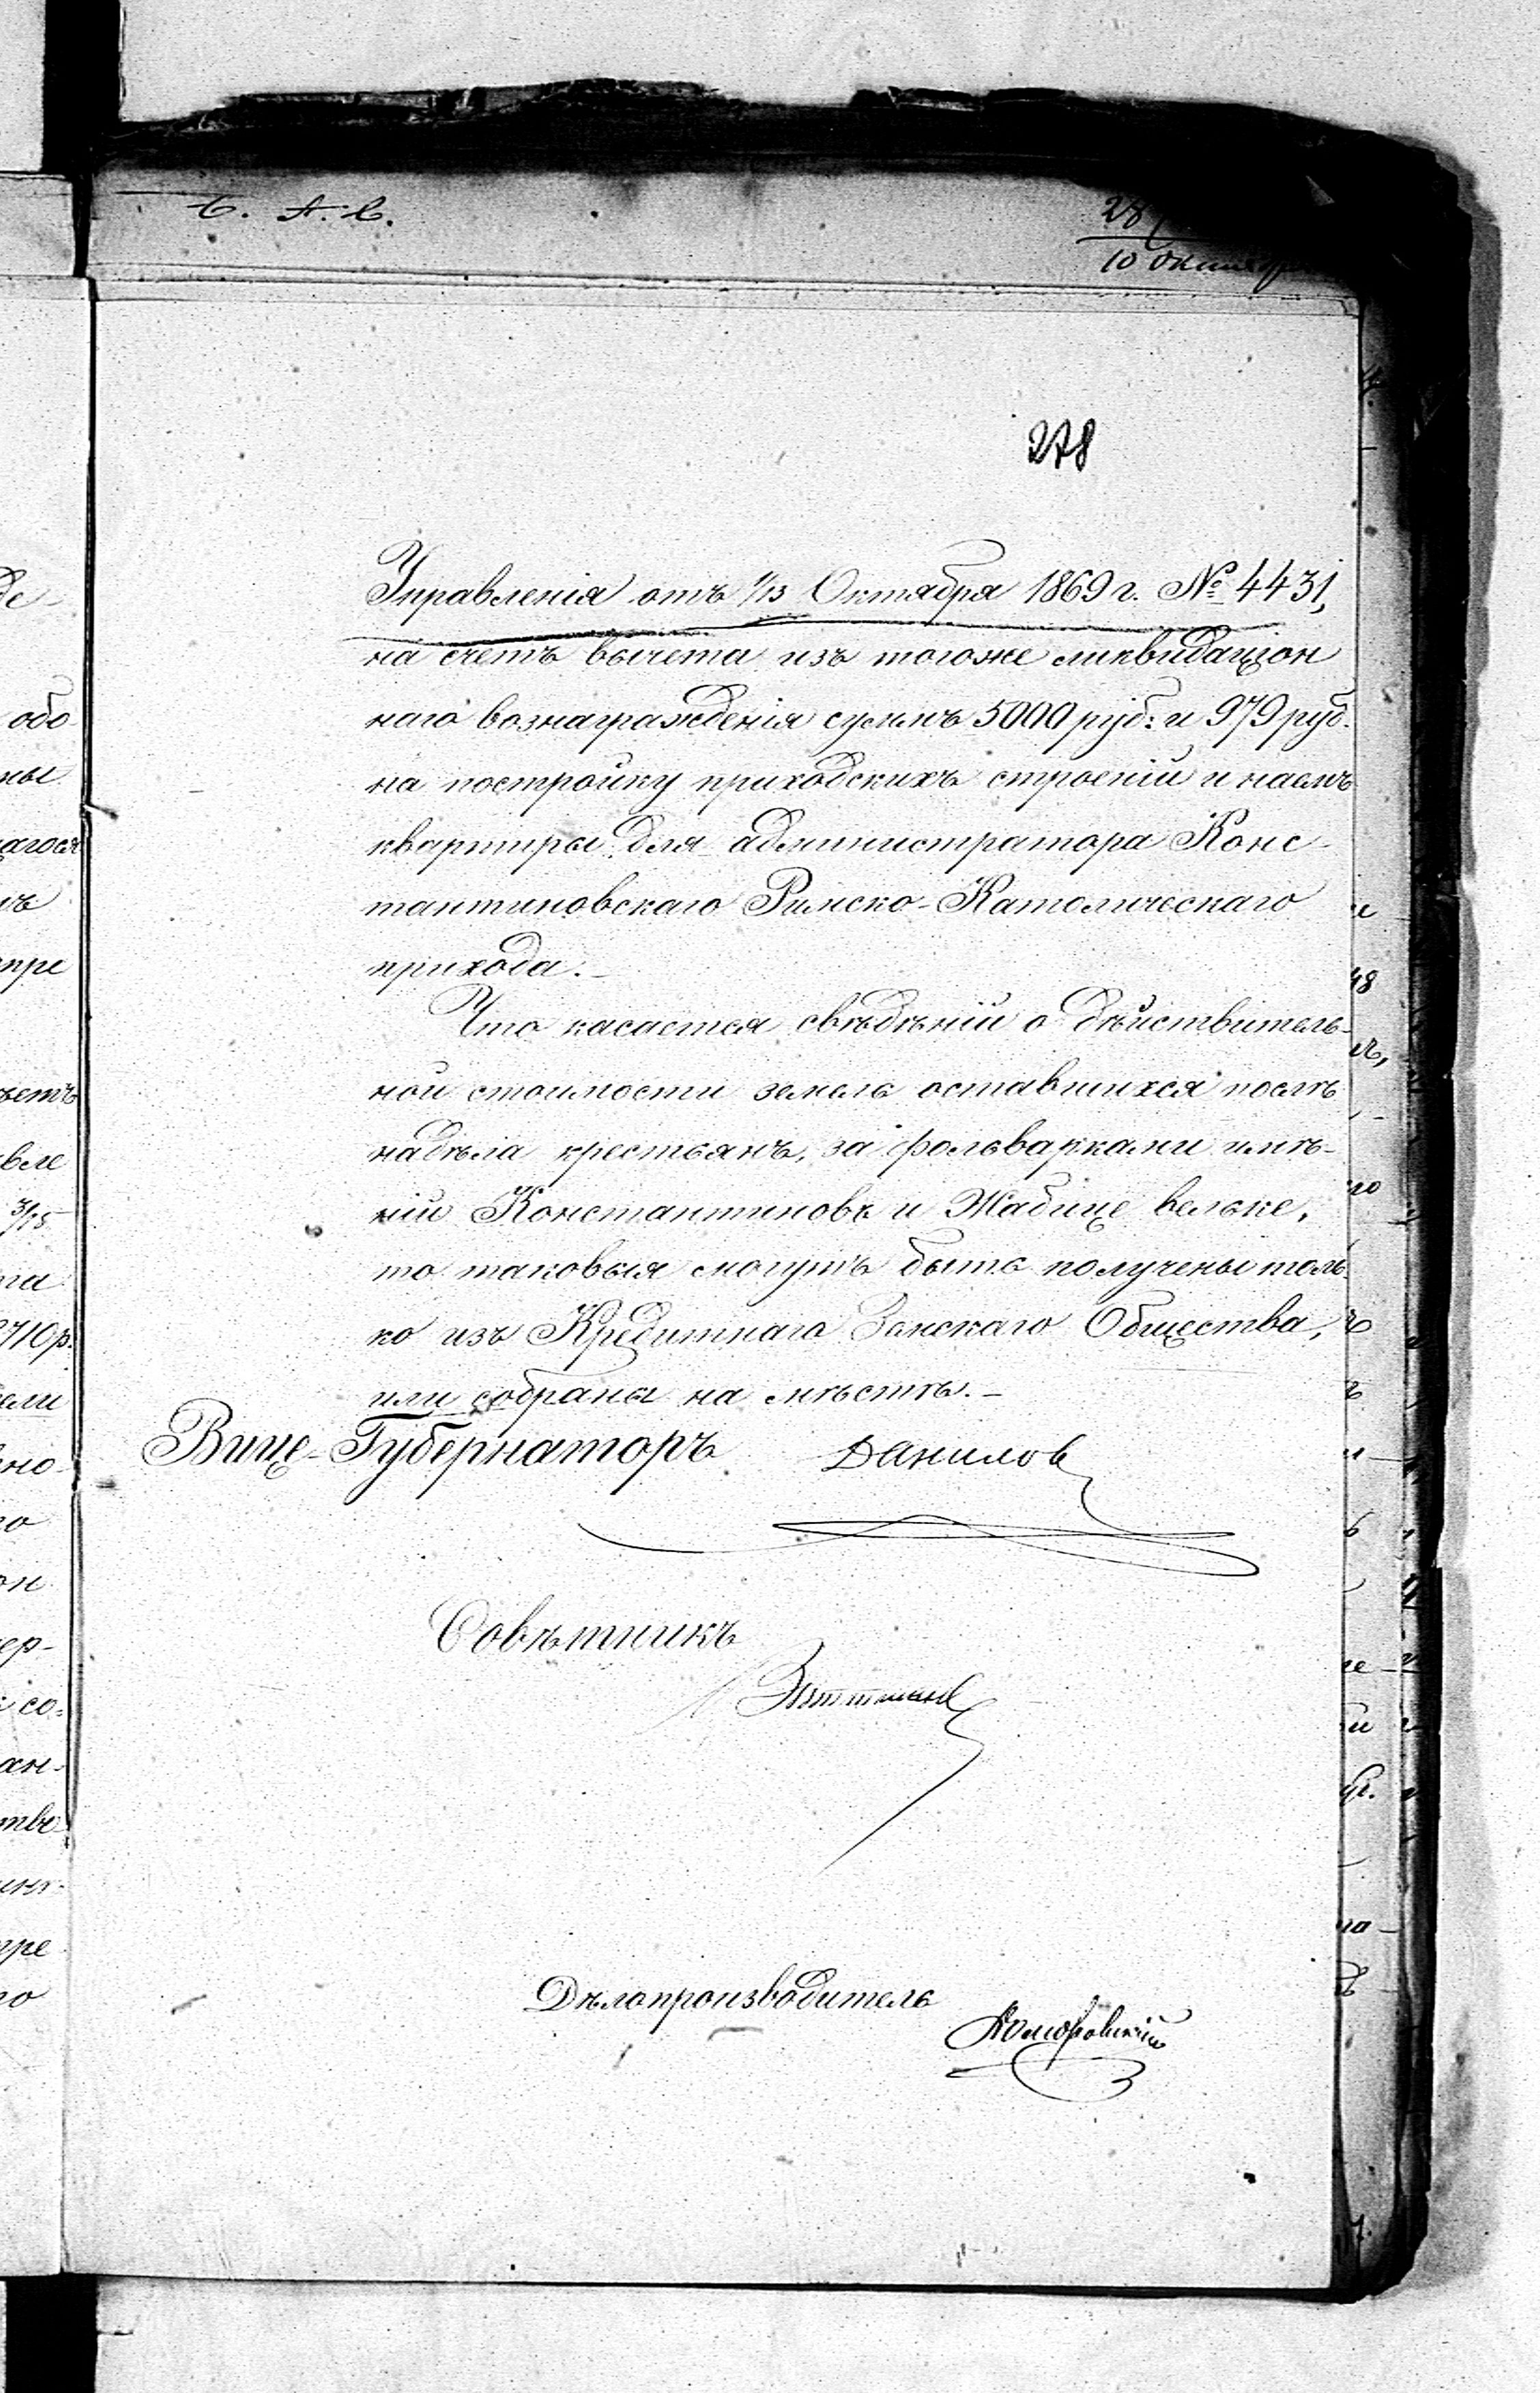 С. А. С.
28
10 Октября
278
Управленія отъ 1/13 Октября 1869 г. № 4431,
на счетъ вычета изъ тогоже ликвидаціон
наго вознагражденія суммъ 5000 руб: и 979 руб.
на постройку приходскихъ строеній и наемъ
квартиры для администратора Конс-
тантиновскаго Римско-Католическаго
прихода.-
Что касается свѣдѣній о дѣйствитель-
ной стоимости земель оставшихся послѣ
надѣла крестьянъ, за фольварками имѣ-
ній Константиновъ и Жабице вельке,
то таковыя могутъ быть получены толь-
ко изъ Кредитнаго Земскаго Общества,
или собраны на мѣстѣ.-
Вице-Губернаторъ Данилов
Совѣтникъ
Дѣлопроизводитель
Коморовскій